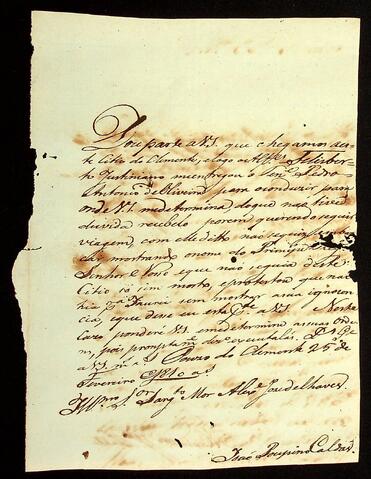 Dou parte a V.S. que chegamos a es-
te Citio do Clemente, e logo o Alfes Felisber-
to Justiniano me entregou o Senr. Pedro
Antonio de Oliveira para o conduzir para
onde V.S. me determina, do que não tive a
duvida recebelo porem querendo seguir
viagem, com elle ditto não seguio
mostrando o nome do Principe
Senhor e todo e que não seguia deste
Citio só sim morto, e protestou que não
hia pa. sem mostrar a sua ignocen-
cia, que dese eu esta Pe. a V.S. Neste
Cazo ponderé V.S. e me determine as suas Orde-
ns, pois promptamte. dos executalas. Ds. Ge.
a V.S. ms. as. Pouzo do Clemente 25 de
Fevereiro 1810 as
Illmo. Sor. Sargto. Mor Alexe. Joze de
João Poupino Caldas